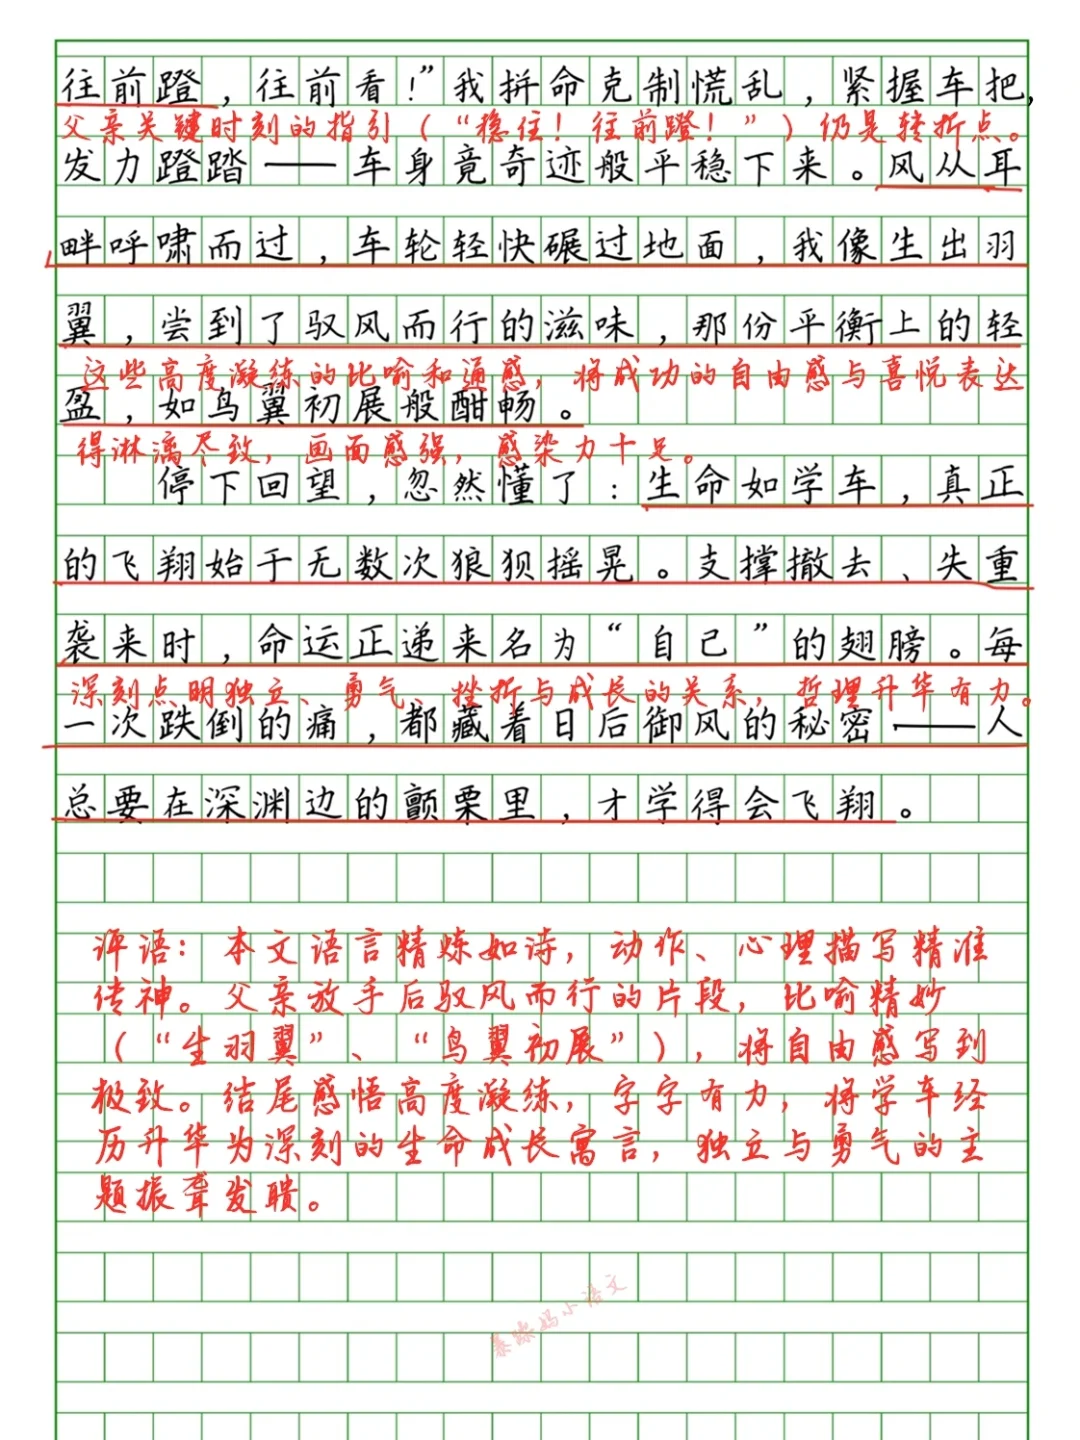 往前蹬，往前看！”我拼命克制慌乱，紧握车把，
父亲关键时刻的指引（“稳住！往前蹬！”）仍是转折点。
发力蹬踏——车身竟奇迹般平稳下来。风从耳
畔呼啸而过，车轮轻快碾过地面，我像生出羽
翼，尝到了驭风而行的滋味，那份平衡上的轻
这些高度凝练的比喻和通感，将成功的自由感与喜悦表达
盈，如鸟翼初展般酣畅。
得淋漓尽致，画面感强，感染力十足。
停下回望，忽然懂了：生命如学车，真正
的飞翔始于无数次狼狈摇晃。支撑撤去、失重
袭来时，命运正递来名为“自己”的翅膀。每
深刻点明独立、勇气、挫折与成长的关系，哲理升华有力。
一次跌倒的痛，都藏着日后御风的秘密——人
总要在深渊边的颤栗里，才学得会飞翔。
评语：本文语言精炼如诗，动作、心理描写精准
传神。父亲放手后驭风而行的片段，比喻精妙
（“生羽翼”、“鸟翼初展”），将自由感写到
极致。结尾感悟高度凝练，字字有力，将学车经
历升华为深刻的生命成长寓言，独立与勇气的主
题振聋发聩。
暴躁妈小语文